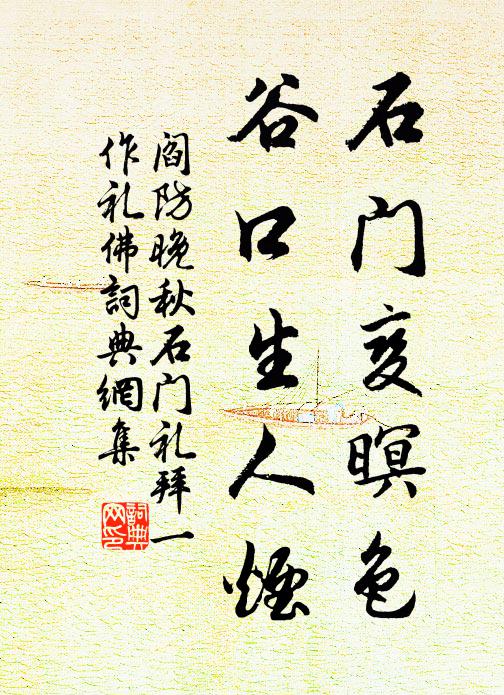 石门变暝色
谷口生人煙
阎防晚秋石门礼拜一
作礼佛詞典網集
詞典网印